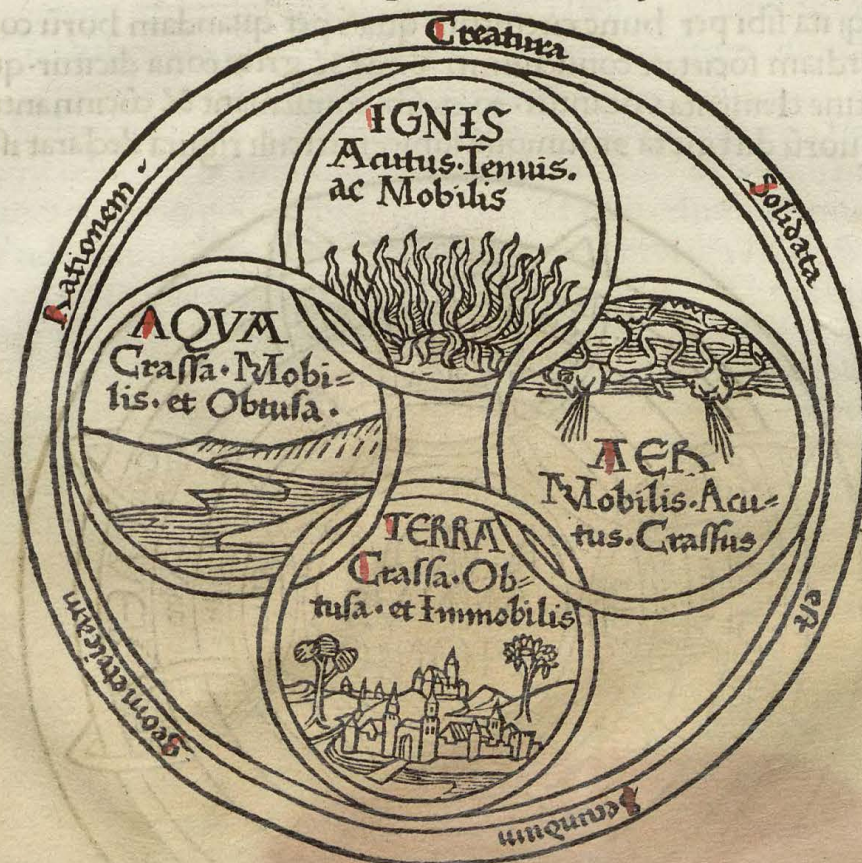 Creatura
Solidata
eſt
Secundum
Geometricam
Rationem
IGNIS
Acutus·Tenuis.
ac Mobilis
AQVA
Craſſa·Mobi=
lis·et Obtuſa.
AER
Mobilis·Acu=
tus·Craſſus
TERRA
Craſſa·Ob=
tuſa·et Immobilis